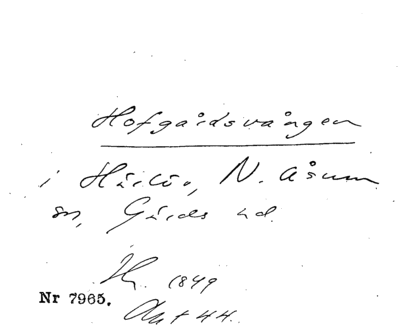 Hofgårdsvången
i Härlöv, N. Åsum
sn, Gärds hd.
Hy. 1849
Nr 7965.
Akt 44.